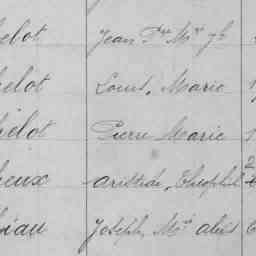 elot Jean Fs Mie
elot Louis, Marie
elot Pierre Marie
eux aristide, Théophil 2
iau Joseph, Mie alexis